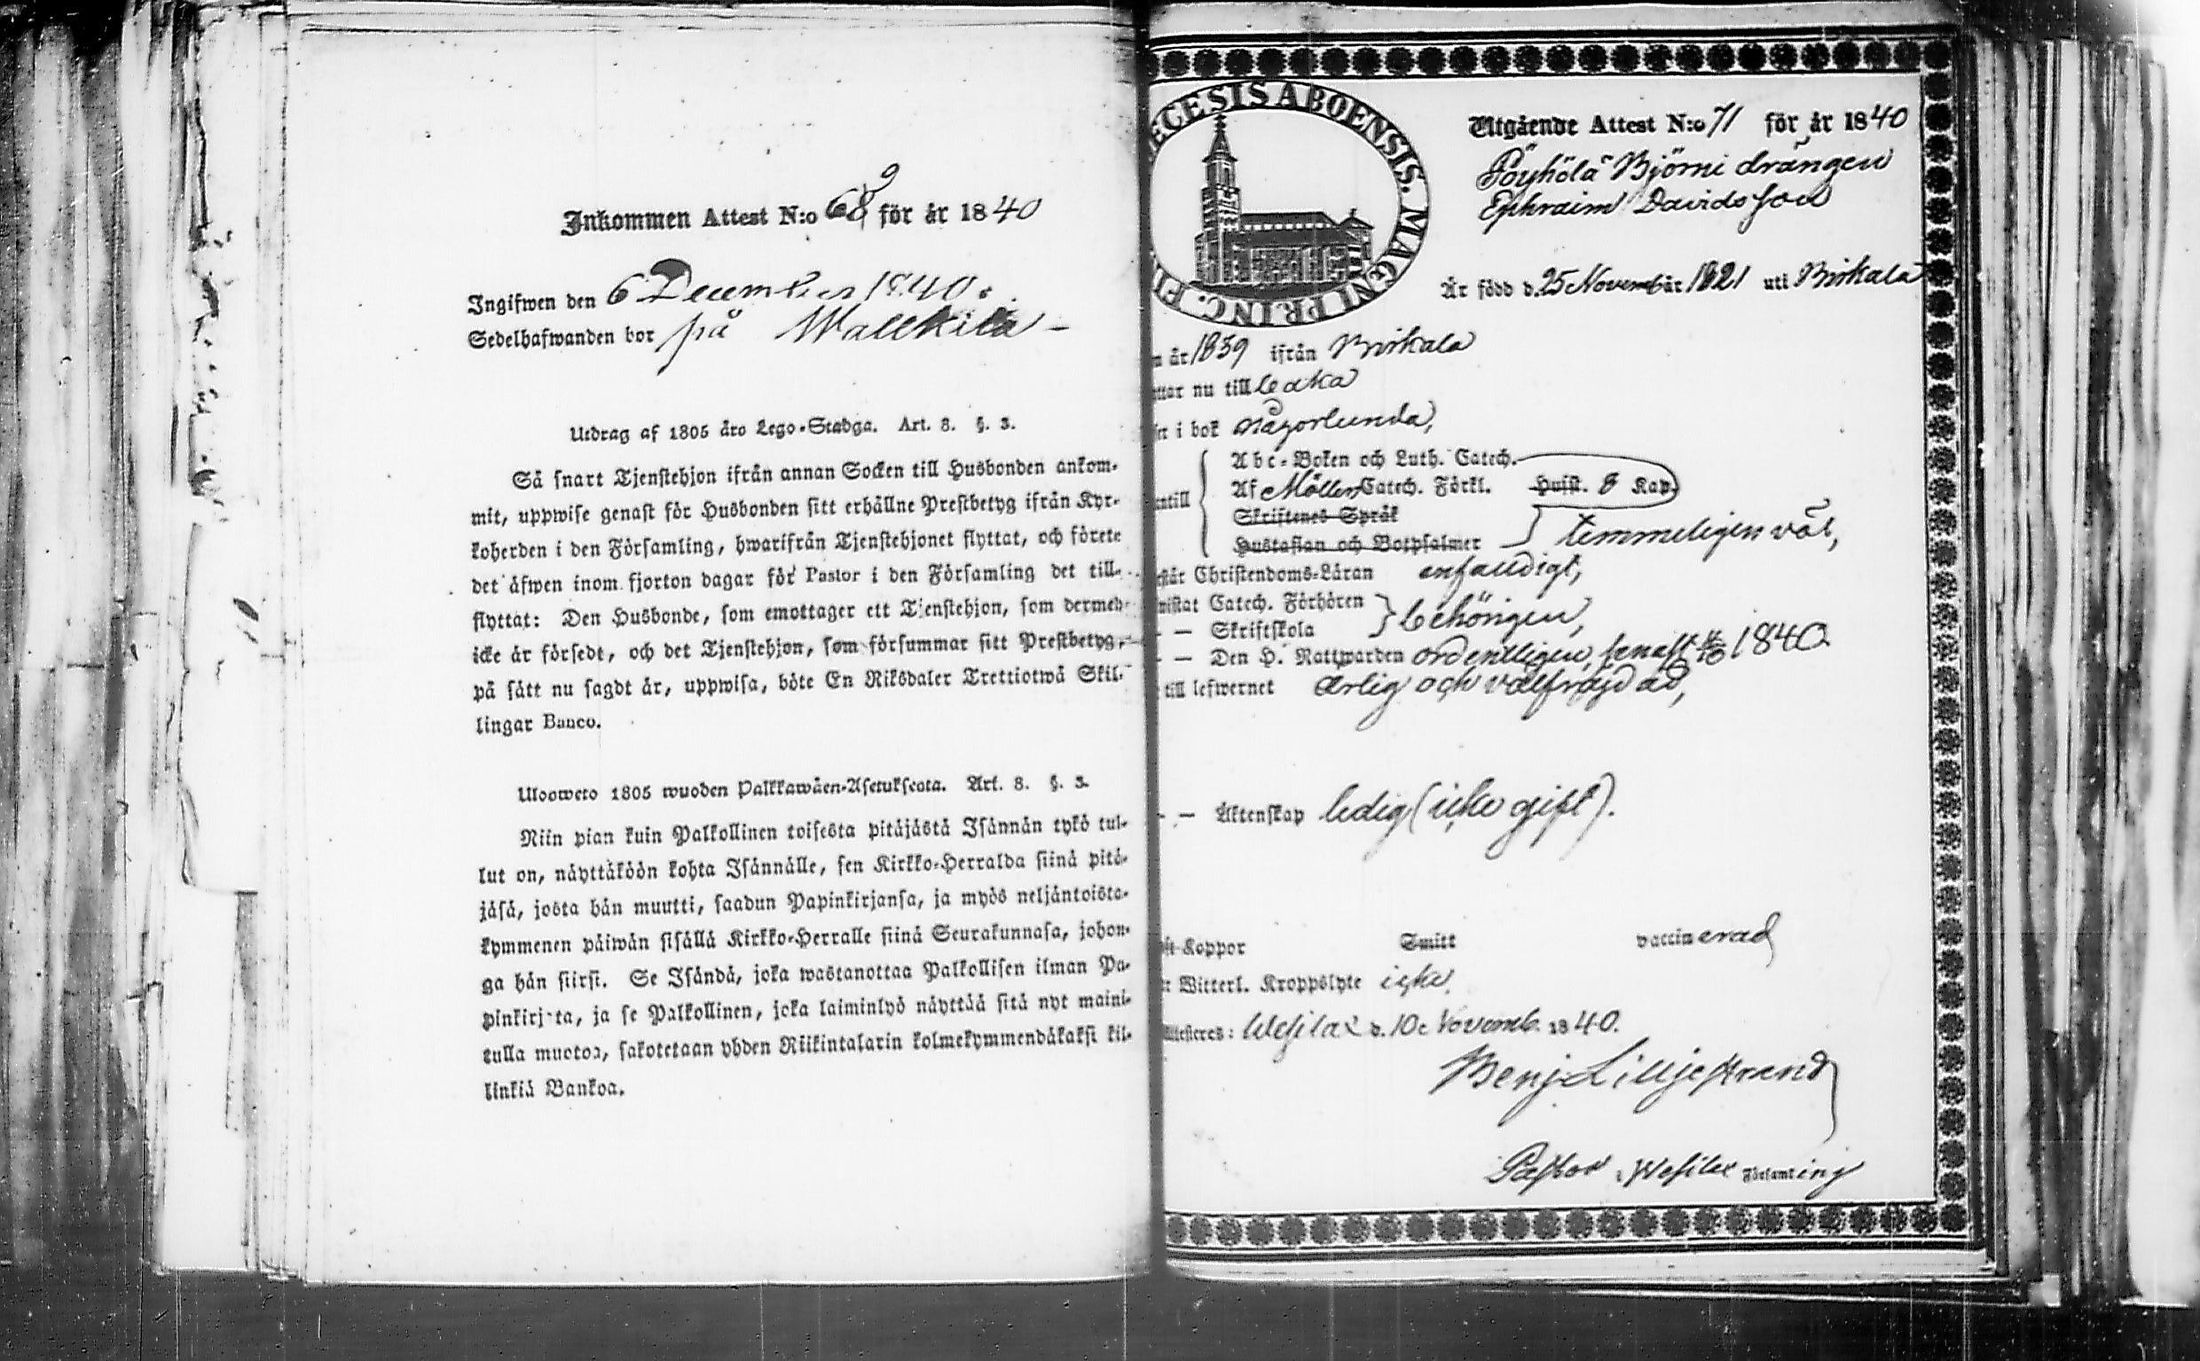 Inkommen Attest N:o 69 för år 1840
Ingifwen den 6 December 1840.
Sedelhafwanden bor på Wallkila
Utdrag af 1805 års Lego-Stadga. Art. 8. §. 3.
Så snart Tjenstehjon ifrån annan Socken till Husbonden ankom-
mit, uppwise genast för Husbonden sitt erhållne Prestbetyg ifrån Kyr-
koherden i den Församling, hwarifrån Tjenstehjonet flyttat, och förete
det äfwen inom fjorton dagar för Pastor i den Församling det till-
flyttat: Den Husbonde, som emottager ett Tjenstehjon, som dermed
icke är försedt, och det Tjenstehjon, som försummar sitt Prestbetyg,
på sätt nu sagdt är, uppwisa, böte En Riksdaler Trettiotwå Skil-
lingar Banco.
Ulosweto 1805 wuoden Palkkawäen-Asetuksesta. Art. 8. §. 3.
Niin pian kuin Palkollinen toisesta pitäjästä Isännän tykö tul-
lut on, näyttäköön kohta Isännälle, sen Kirkko-Herralda siinä pitä-
jäsä, josta hän muutti, saadun Papinkirjansa, ja myös neljäntoista-
kymmenen päiwän sisällä Kirkko-Herralle siinä Seurakunnasa, johon-
ga hän siirsi. Se Isändä, joka wastanottaa Palkollisen ilman Pa-
pinkirjata, ja se Palkollinen, joka laiminlyö näyttää sitä nyt maini-
tulla muotoa, sakotetaan yhden Riikintalarin kolmekymmendäkaksi kil-
linkiä Bankoa.
ECESIS ABOENSIS. MAGNI PRINC. FI
Utgående Attest N:o 71 för år 1840
Pöyhölä Björni drängen
Ephraim Davidsson
Är född d. 25 November 1821 uti Birkala
år 1839 ifrån Birkala
ttar nu till
i bok någorlunda,
Abc-Boken och Luth. Catech.
Af Möllers Catech. Förkl. Hvist. 8 Kap.
entill
Skriftenes Språk
Hustaflan och Botpsalmer temmeligen väl,
står Christendoms-Läran enfaldigt,
wistat Catech. Förhören
— Skriftskola behörigen,
— Den H. Nattwarden ordentligen, senast 4/10 1840
till lefwernet ärlig och välfrägdad,
— Äktenskap ledig (icke gift).
Koppor Smitt vaccinerad
Witterl. Kroppslyte icke
Attesteres: Wesilax d. 10 Novemb. 1840.
Benj. Lilljestrand
Pastor i Wesilax Församling